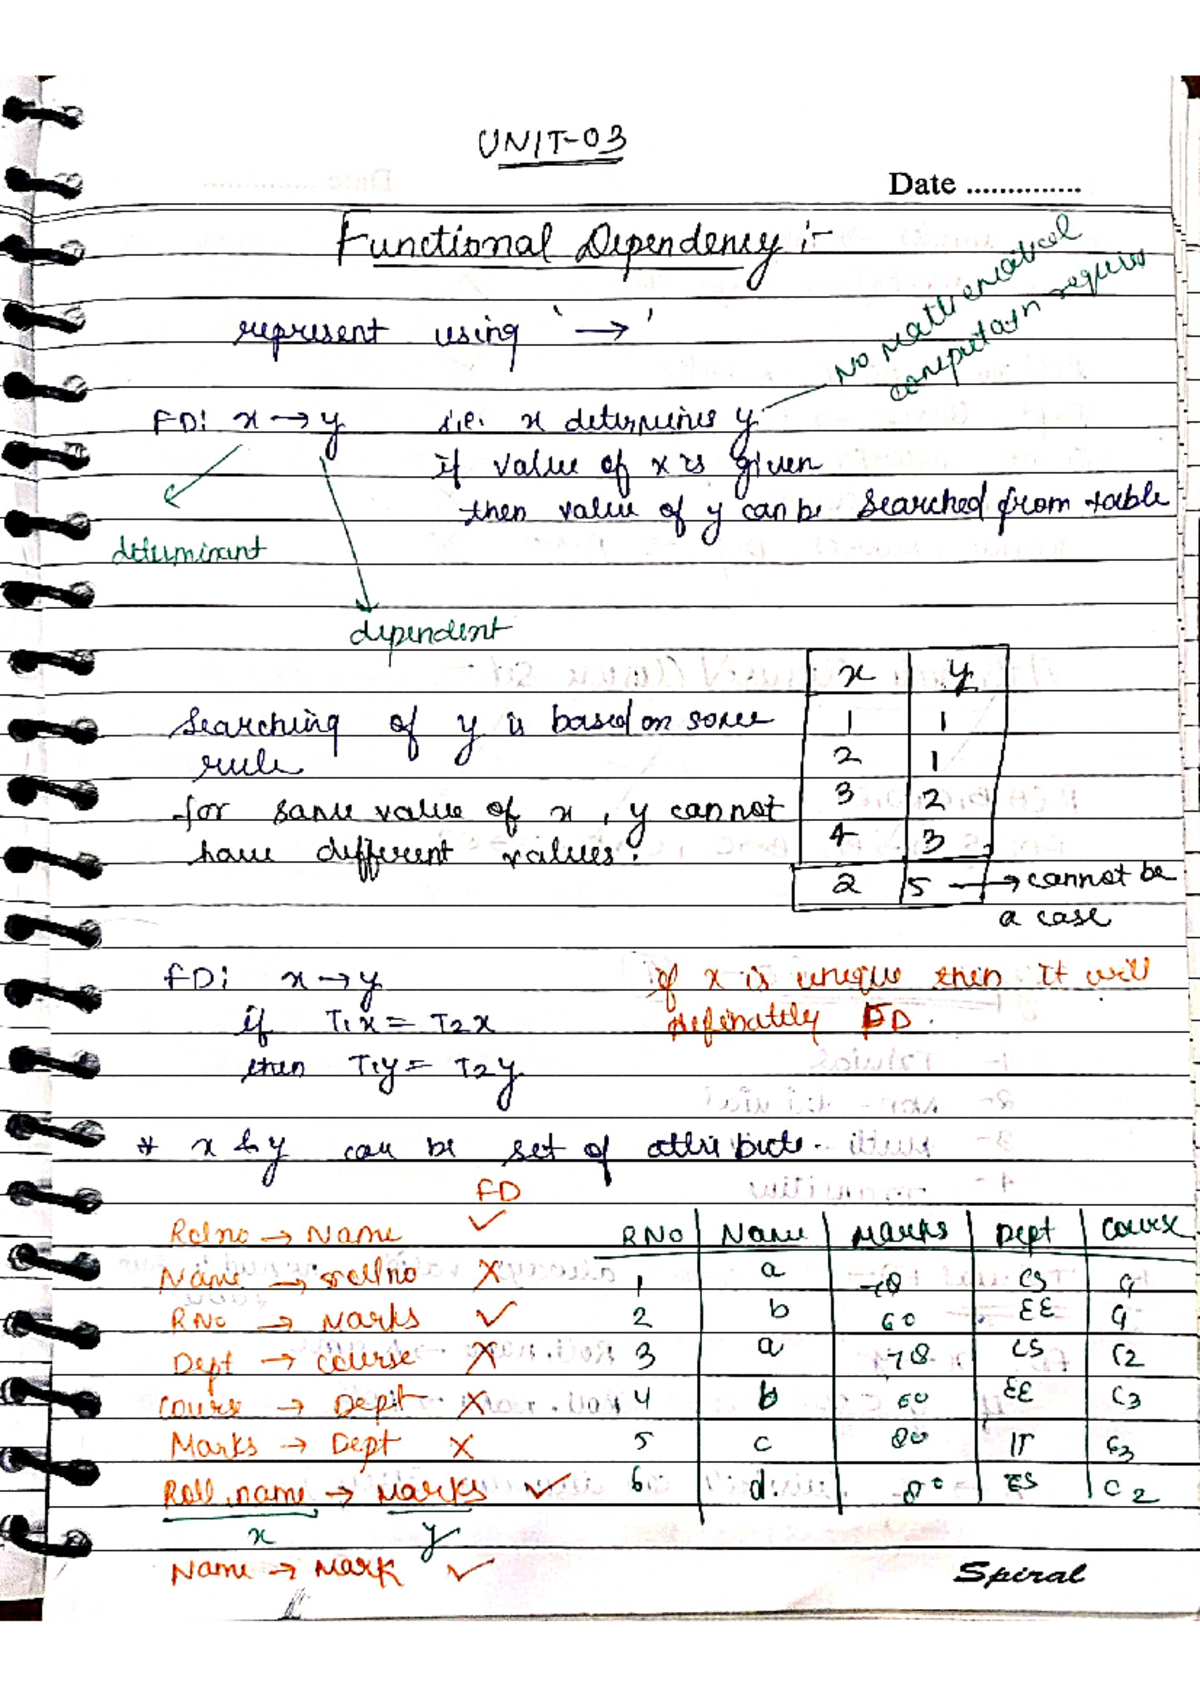 UNIT-03
Date ..............
Functional Dependency :-
represent using ' → '
No mathematical
computatn require
FD: x → y i.e. x determines y
if value of x is given
then value of y can be searched from table
determinant
dependent
x y
Searching of y is based on some
rule
1 1
2 1
for same value of x, y cannot
have different values.
3 2
4 3
2 5 → cannot be
a case
FD: x → y
if T1x = T2x
then T1y = T2y
if x is unique then it will
definattely FD.
* x & y can be set of attribute.
FD
Rolno → Name ✓
Name → rollno X
RNo → Marks ✓
Dept → course X
Course → Dept X
Marks → Dept X
Roll, name → Marks ✓
x y
Name → Mark ✓
RNo Name Marks Dept Course
1 a 78 CS
2 b 60 EE
3 a 78 CS C2
4 b 60 EE C3
5 c 80 IT C3
6 d. 80 C2
Spiral